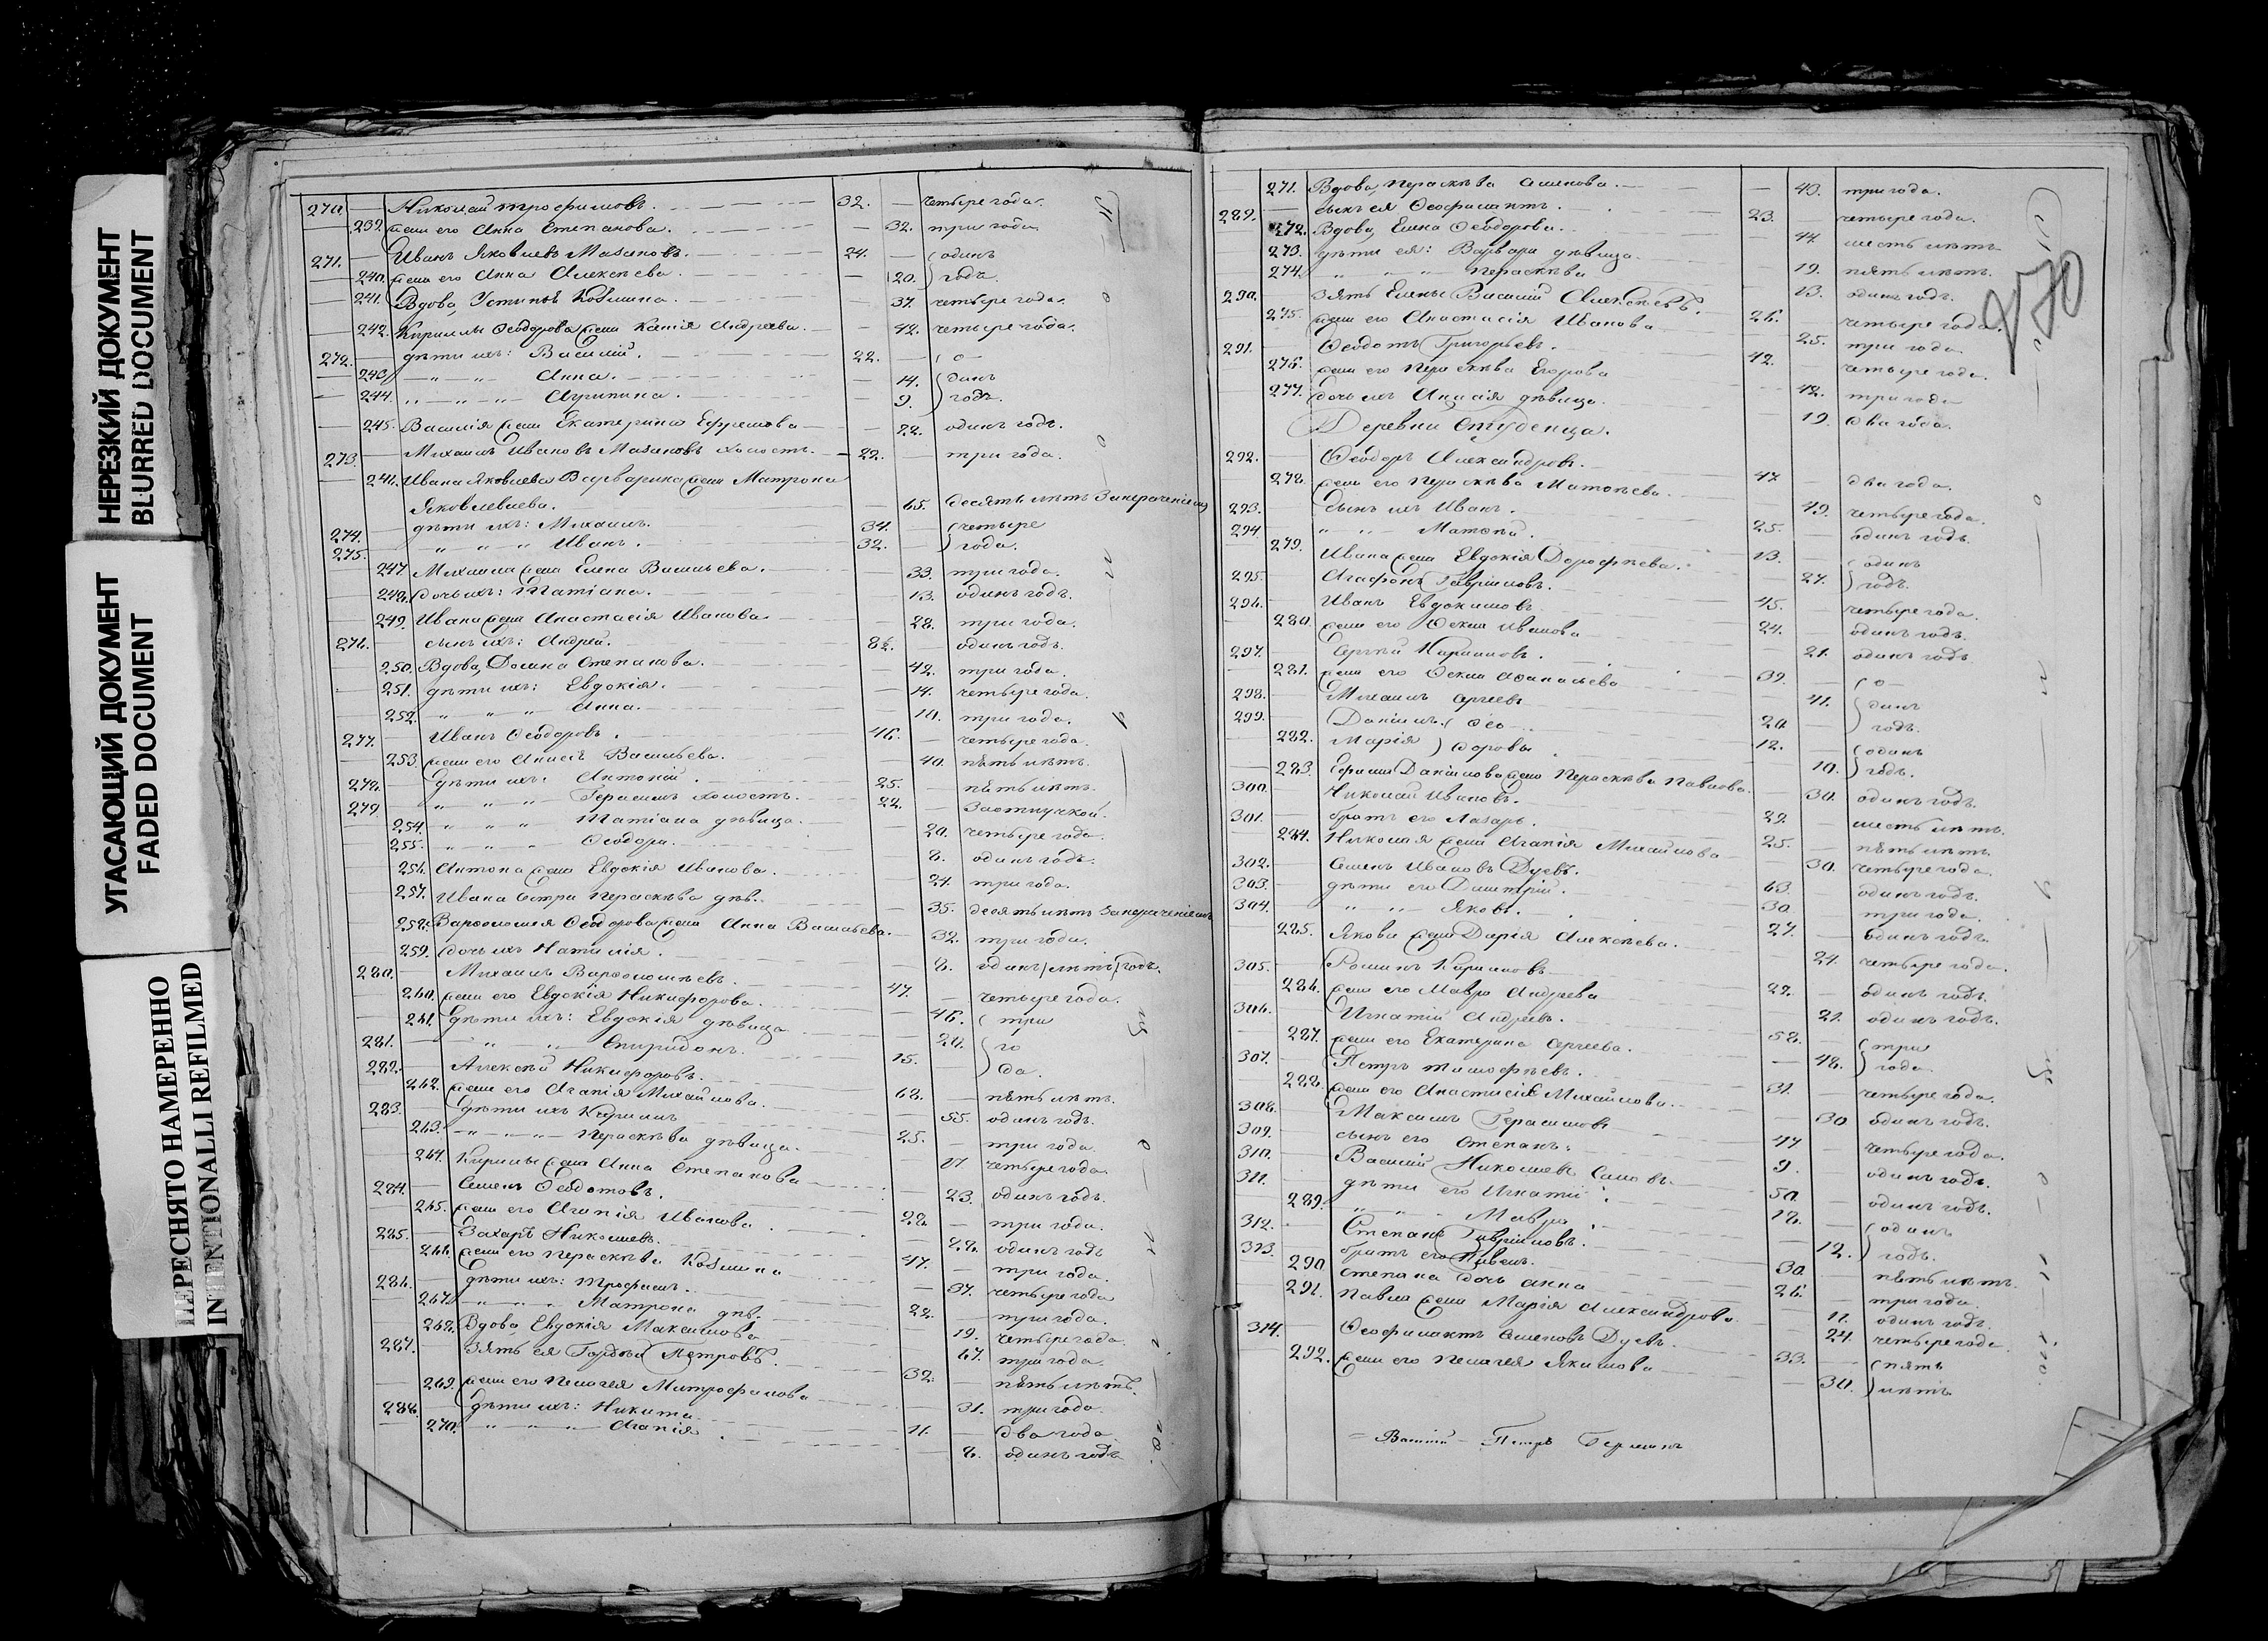 НЕРЕЗКИЙ ДОКУМЕНТ
BLURRED DOCUMENT
УГАСАЮЩИЙ ДОКУМЕНТ
FADED DOCUMENT
ПЕРЕСНЯТО НАМЕРЕННО
INTENTIONALLI REFILMED
270. Николай Трофимовъ. 32. четыре года.
239. жена его Анна Степанова. 32. три года.
271. Иванъ Яковлевъ Мазановъ. 24. один
240. жена его Анна Алексѣева. 20. годъ.
241. Вдова, Козмина. 37. четыре года.
242. Кириллы Ѳеодорова жена Ксенія Андреева. 42. четыре года.
272. дѣти ихъ: Василій. 22. о
243. Анна. 14. динъ
244. Агрипина. 9. годъ.
245. Василія жена Екатерина Ефремова 22. одинъ годъ.
273. Михаилъ Ивановъ Мазановъ холостъ. 22. три года.
246. Ивана Яковлева жена Матрона
Яковлевлева. 65. десять лѣтъ
274. дѣти ихъ: Михаилъ. 34. четыре
275. Иванъ. 32. года.
247. Михаила жена Елена Васильева. 33. три года.
248. дочь ихъ: Татіана. 13. одинъ годъ.
249. Ивана жена Анастасія Иванова. 28. три года.
276. сынъ ихъ: Андрей. одинъ годъ.
250. Вдова, Домна Степанова. 42. три года.
251. дѣти ихъ: Евдокія. 14. четыре года.
252. Анна. 10. три года.
277. Иванъ Ѳеодоровъ. 46. четыре года.
253. жена его Васильева. 40. пять лѣтъ.
278. дѣти ихъ: Антоній. 25. пять лѣтъ.
279. Герасимъ холостъ. 22. За отлучкой.
254. Татіана дѣвица. 20. четыре года.
255. Ѳеодора. 8. одинъ годъ.
256. Антона жена Евдокія Иванова. 24. три года.
257. Ивана сестра Параскѣва дѣв. 35. десять лѣтъ
258. Варѳоломея Ѳеодорова жена Анна Васильева. 32. три года.
259. дочь ихъ Наталія. 8. одинъ годъ.
280. Михаилъ Варѳоломѣевъ. 47. четыре года.
260. жена его Евдокія Никифорова. 46. три
261. дѣти ихъ: Евдокія дѣвица 20. го
281. Спиридонъ. 15. да.
282. Алексѣй Никифоровъ. 68. пять лѣтъ.
262. жена его Агапія Михайлова. 55. одинъ годъ.
283. дѣти ихъ Кирилъ 25. три года.
263. Параскѣва дѣвица. 17. четыре года.
264. Кирилы жена Анна Степанова 23. одинъ годъ.
284. Семенъ Ѳеодотовъ. 28. три года.
265. жена его Агапія Иванова. 28. одинъ годъ
285. Захаръ Николаевъ. 47. три года.
266. жена его Параскѣва Козмина 37. четыре года
286. дѣти ихъ: Трофимъ. 22. три года.
267. Матрона дѣв. 19. четыре года.
268. Вдова, Евдокія Максимова 67. три года.
287. Зять ея Гордѣй Петровъ. 32. пять лѣтъ.
269. жена его Пелагея Митрофанова 31. три года.
288. дѣти ихъ: Никита 11. два года.
270. Агапія 8. одинъ годъ
270
271. Вдова, Параскѣва Семенова. 43. три года.
289. сынъ ея Ѳеофилактъ. 23. четыре года.
272. Вдова, Елена Ѳеодорова. 44. шесть лѣтъ
273. дѣти ея: Варвара дѣвица. 19. пять лѣтъ.
274. Параскѣва 13. одинъ годъ.
290. Зять Елены Василій Алексѣевъ. 26. четыре года.
275. жена его Анастасія Иванова 25. три года.
291. Ѳеодотъ Григорьевъ. 42. четыре года.
276. жена его Параскѣва Егорова 42. три года
277. дочь ихъ дѣвица. 19. два года.
Деревни Студенца.
292. Ѳеодоръ Александровъ. 47 два года.
278. жена его Параскѣва Матвѣева. 49. четыре года.
293. сынъ ихъ Иванъ. 25. одинъ годъ.
294. Матвѣй. 13. одинъ
279. Ивана жена Евдокія Дорофѣева. 27. годъ.
295. Агафонъ Гавриловъ. 45. четыре года.
296. Иванъ Евдокимовъ 24. одинъ годъ.
280. жена его Ѳекла Иванова 21. одинъ годъ
297. Сергѣй Кириловъ. 39. о
281. жена его Ѳекла Аѳанасьева 41. динъ
298. Михаилъ Сергѣевъ 20. годъ.
299. Даніилъ Ѳео 12. одинъ
282. Марія доровы. 10. годъ.
283. Даніилова жена Параскѣва Павлова. 30. одинъ годъ.
300. Николай Ивановъ. 29. шесть лѣтъ.
301. братъ его Лазарь. 25. пять лѣтъ.
284. Николая жена Агапія Михайлова 30. четыре года.
302. Семенъ Ивановъ Дуевъ. 63. одинъ годъ.
303. дѣти его Димитрій. 30. три года.
304. Яковъ. 27. одинъ годъ.
285. Якова жена Дарія Алексѣева. 21. четыре года.
305. Романъ Кириловъ 22. одинъ годъ.
286. жена его Мавра Андреева 21. одинъ годъ.
306. Игнатій Андреевъ. 52. три
287. жена его Екатерина Сергѣева. 48. года
307. Петръ Тимофѣевъ. 31. четыре года.
288. жена его Анастасія Михайлова. 30 одинъ годъ.
308. Максимъ Герасимовъ 47 четыре года.
309. сынъ его Степанъ. 9. одинъ годъ.
310. Василій Николаевъ 50. одинъ годъ.
311. дѣти его Игнатій. 18. одинъ
289. Мавра. 12. годъ.
312. Степанъ Гавриловъ. 30. пять лѣтъ.
313. братъ его Павелъ. 26. три года.
290. Степана дочь Анна 11. одинъ годъ.
291. Павла жена Марія Александрова 24. четыре года.
314. Ѳеофилактъ Семеновъ Дуевъ. 33. пять
292. жена его Пелагея Якимова 30. лѣтъ.